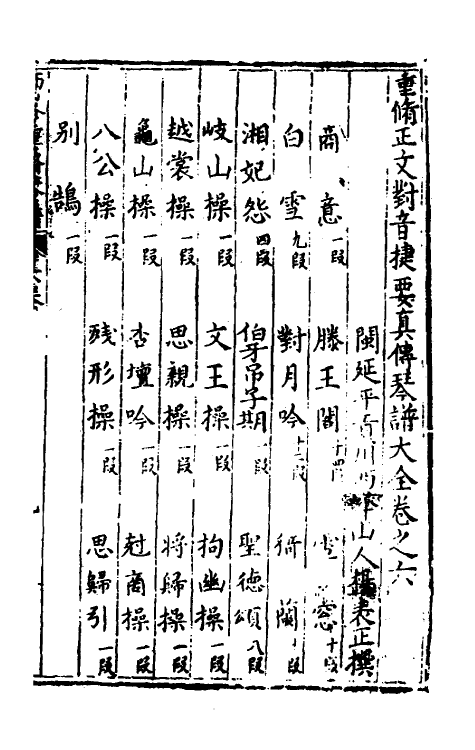 重脩正文對音捷要真傳琴譜大全卷之六
閩延平 山人 楊表正撰
商意一段 滕王閣
白雪九段 對月吟十二段 蘭
湘妃怨四段 伯牙吊子期一段 聖德頌八段
岐山操一段 文王操一段 拘幽操一段
越裳操一段 思親操一段 將歸操一段
龜山操一段 杏壇吟一段 尅商操一段
八公操一段 殘形操一段 思歸引一段
別鵠一段